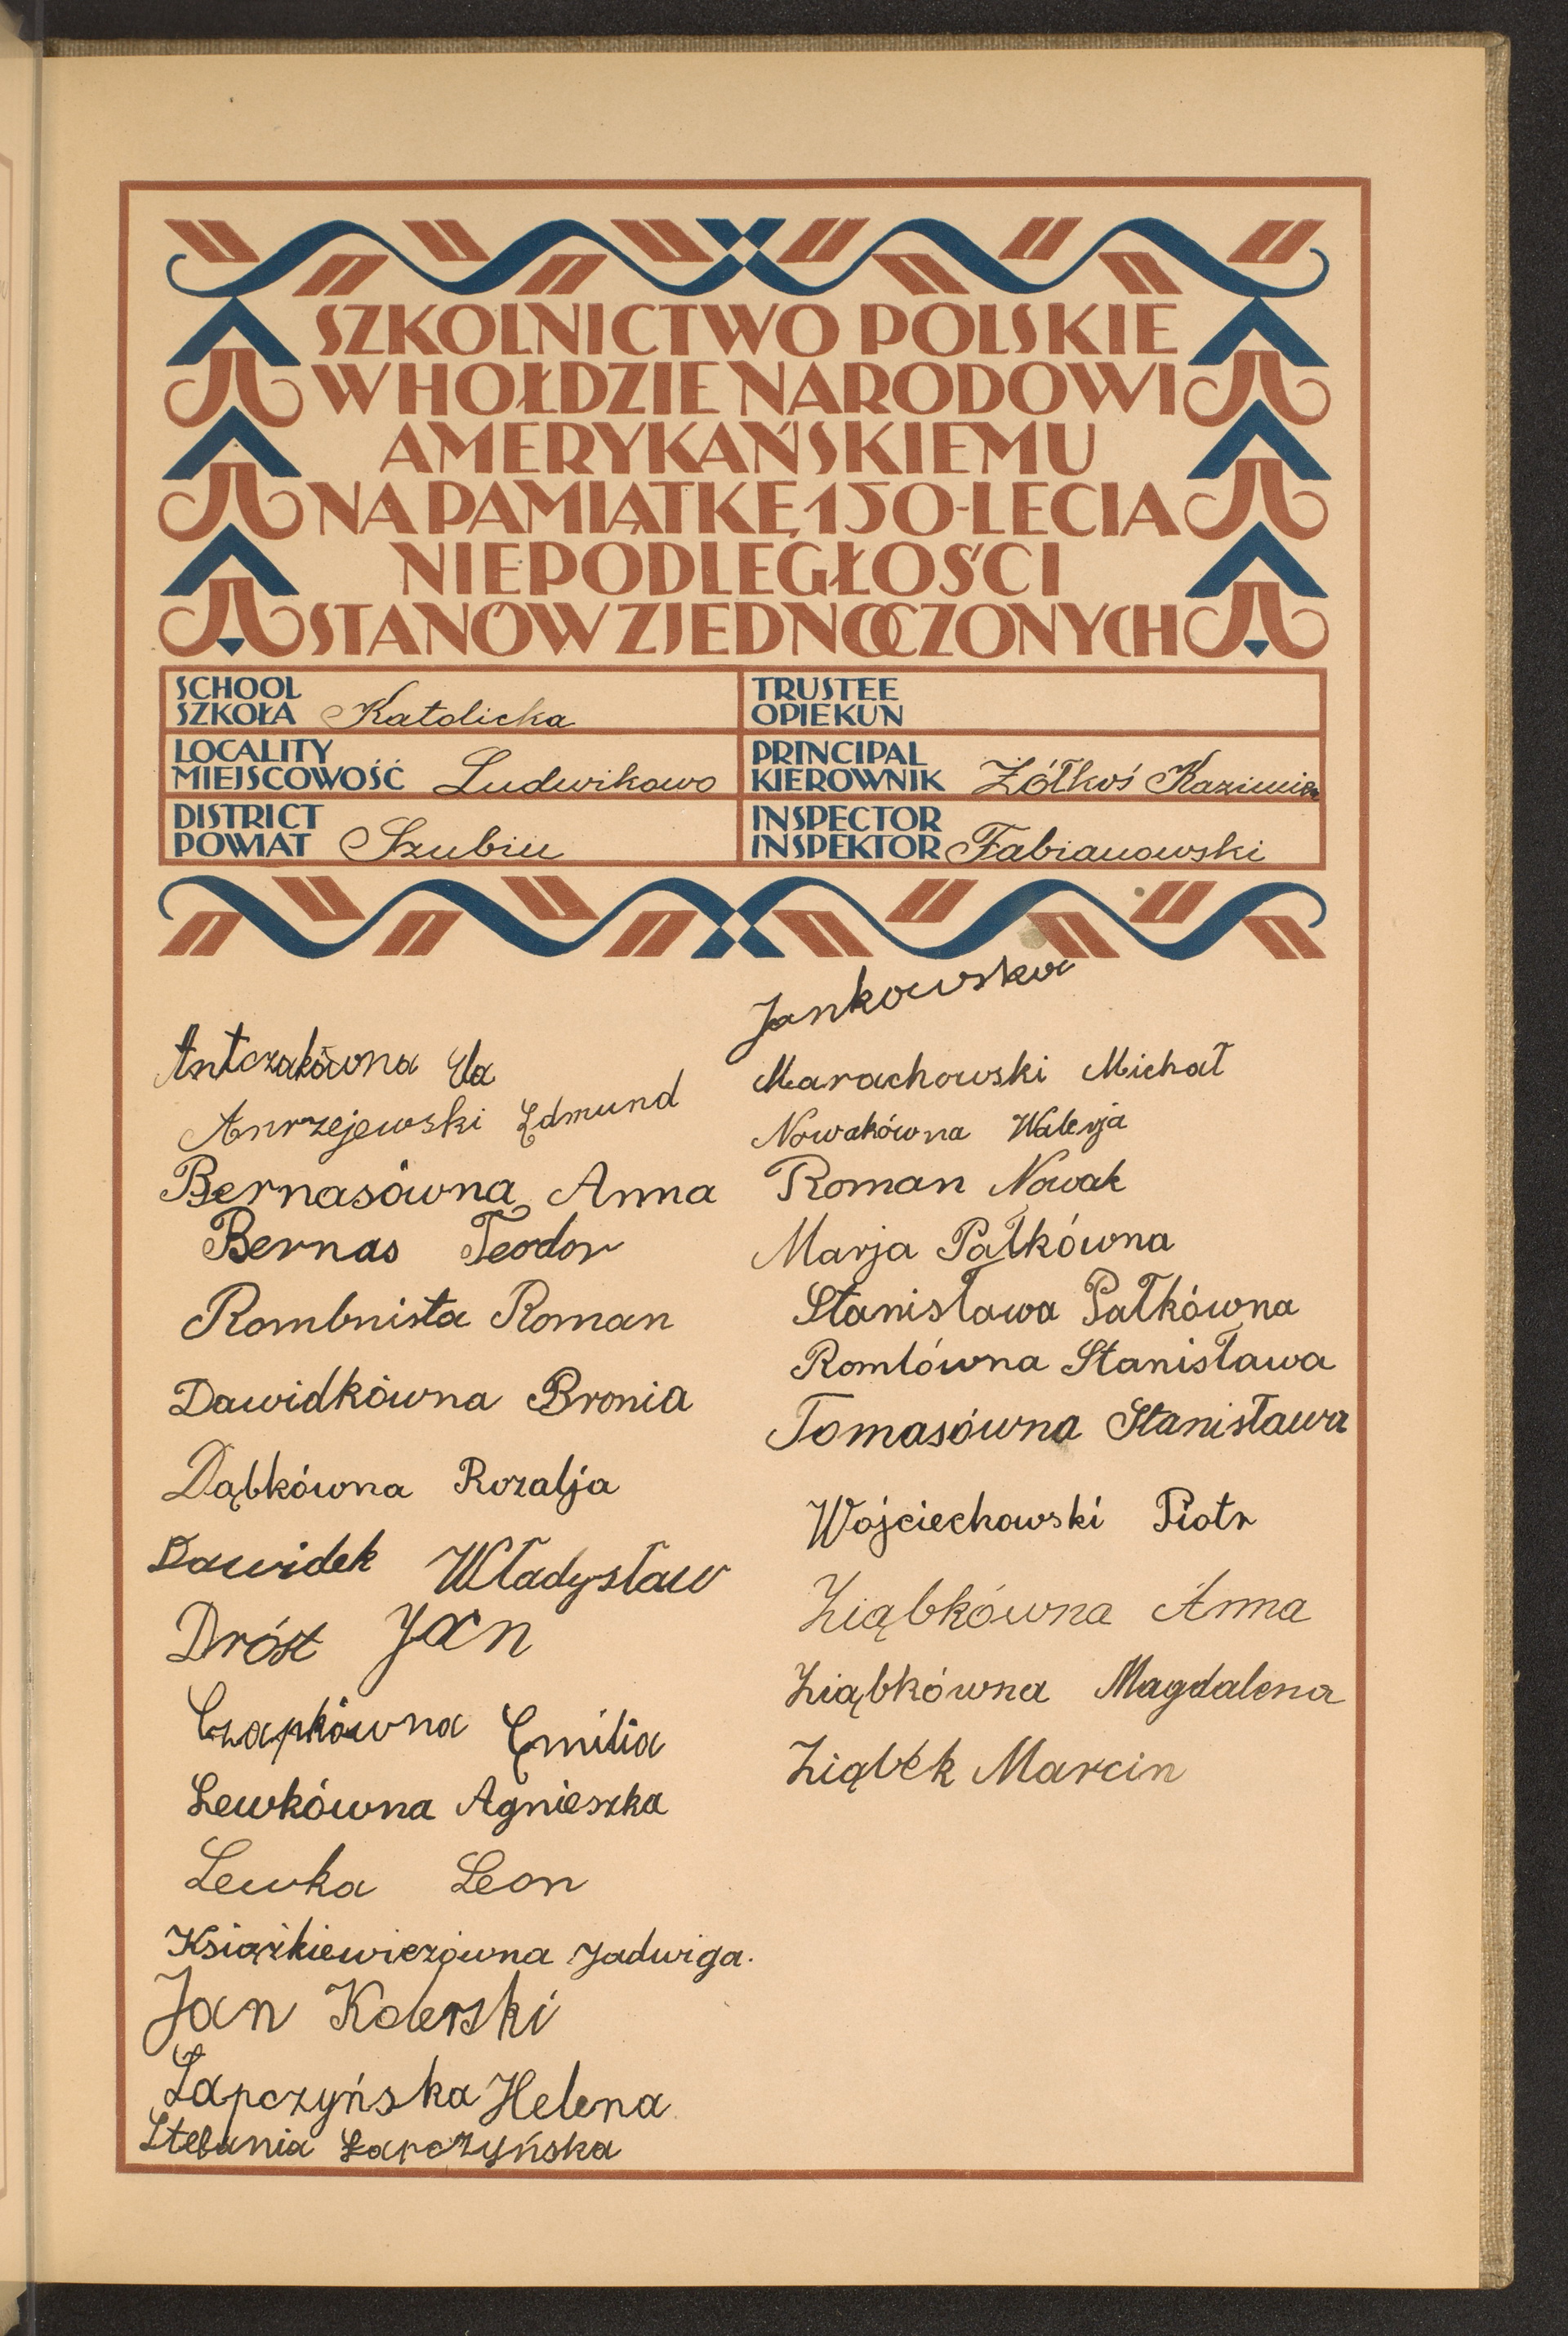 SZKOLNICTWO POLSKIE
W HOŁDZIE NARODOWI
AMERYKAŃSKIEMU
NA PAMIĄTKĘ 150-LECIA
NIEPODLEGŁOŚCI
STANÓW ZJEDNOCZONYCH
SCHOOL
SZKOŁA Katolicka
LOCALITY
MIEJSCOWOŚĆ Ludwikowo
DISTRICT
POWIAT Szubin
TRUSTEE
OPIEKUN
PRINCIPAL
KIEROWNIK Żółkoś Kazimierz
INSPECTOR
INSPEKTOR Fabianowski
Antczakówna
Anrzejewski Edmund
Bernasówna Anna
Bernas Teodor
Rombnista Roman
Dawidkówna Bronia
Dąbkówna Rozalja
Dawidek Władysław
Dróst Jan
Czapkówna Emilia
Lewkówna Agnieszka
Lewka Leon
Książkiewiczówna Jadwiga.
Jan Kolerski
Łapczyńska Helena
Stefania Łapczyńska
Jankowska
Marachowski Michał
Nowakówna Walerja
Roman Nowak
Marja Pałkówna
Stanisława Pałkówna
Romlówna Stanisława
Tomasówna Stanisława
Wojciechowski Piotr
Ziąbkówna Anna
Ziąbkówna Magdalena
Ziąbek Marcin